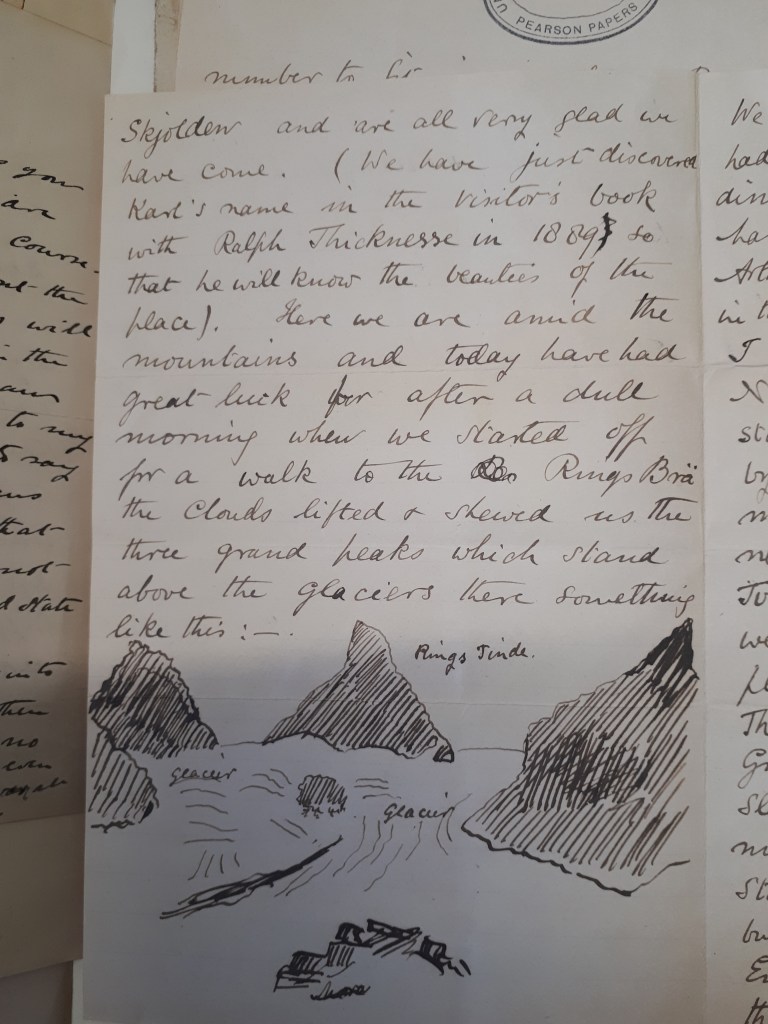 PEARSON PAPERS
number to
Skjolden and are all very glad we
have come. (We have just discovered
Karl's name in the visitor's book
with Ralph Thicknesse in 1889 so
that he will know the beauties of the
place). Here we are amid the
mountains and today have had
great luck for after a dull
morning when we started off
for a walk to the Rings Brä
the clouds lifted & shewed us the
three grand peaks which stand
above the glaciers there something
like this :—.
Rings Tinde.
glacier
glacier
you
are
course
the
will
the
to my
say
that
not
State
into
then
no
even
We
had
in
I
we